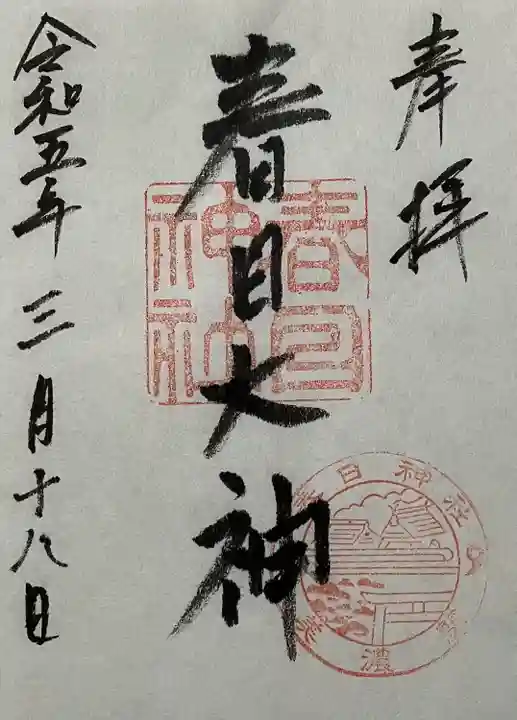 奉拝
春日大神
春日神社
令和五年三月十八日
春日神社
美濃